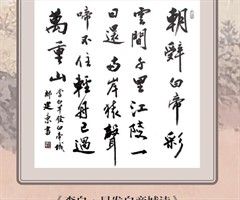 朝辭白帝彩
雲間千里江陵一
日還兩岸猿聲
啼不住輕舟已過
萬重山
李白早發白帝城
《李白·早发白帝城诗》